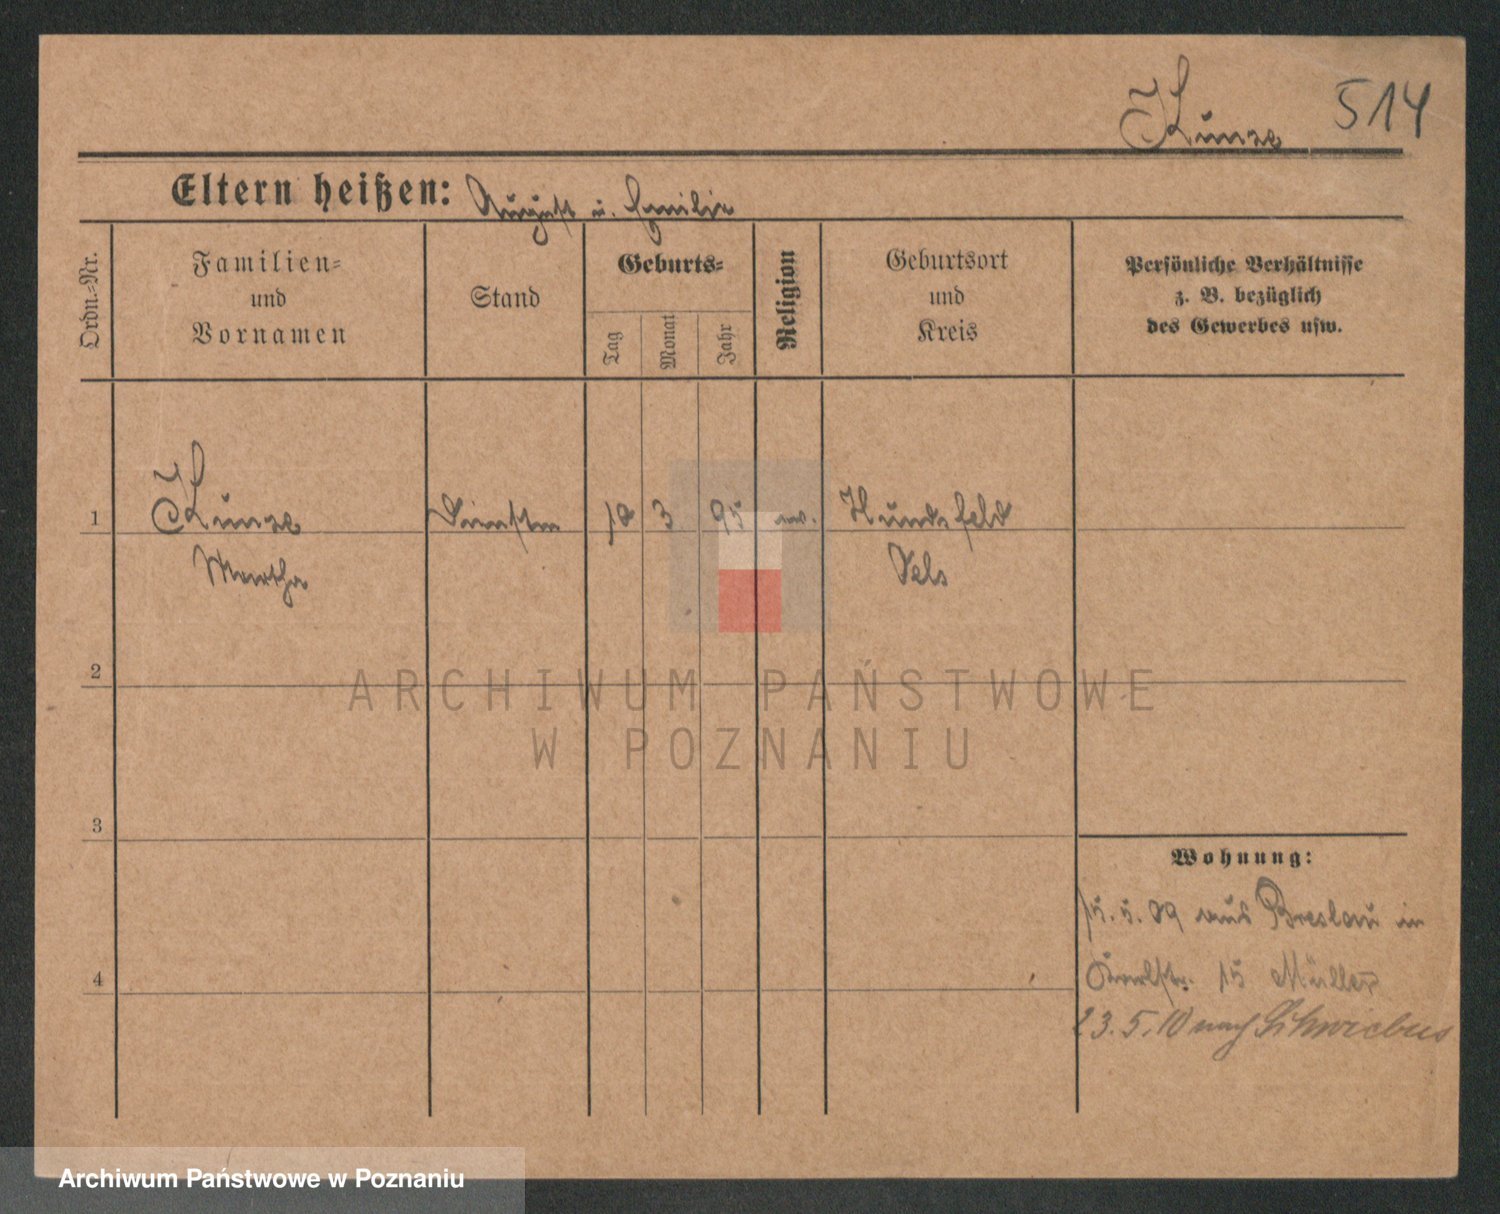 Kunze 514
Eltern heißen: August u. Emilie
Ordn.-Nr.
Familien-
und
Vornamen
Stand
Geburts-
Tag
Monat
Jahr
Religion
Geburtsort
und
Kreis
Persönliche Verhältnisse
z. B. bezüglich
des Gewerbes usw.
1 Kunze 3 95 ev. Hundsfeld
Martha Oels
2
3
4
Wohnung:
15.5.09 aus Breslau in
Karlstr. 15 Müller
23.5.10 nach Schwiebus
ARCHIWUM PAŃSTWOWE
W POZNANIU
Archiwum Państwowe w Poznaniu